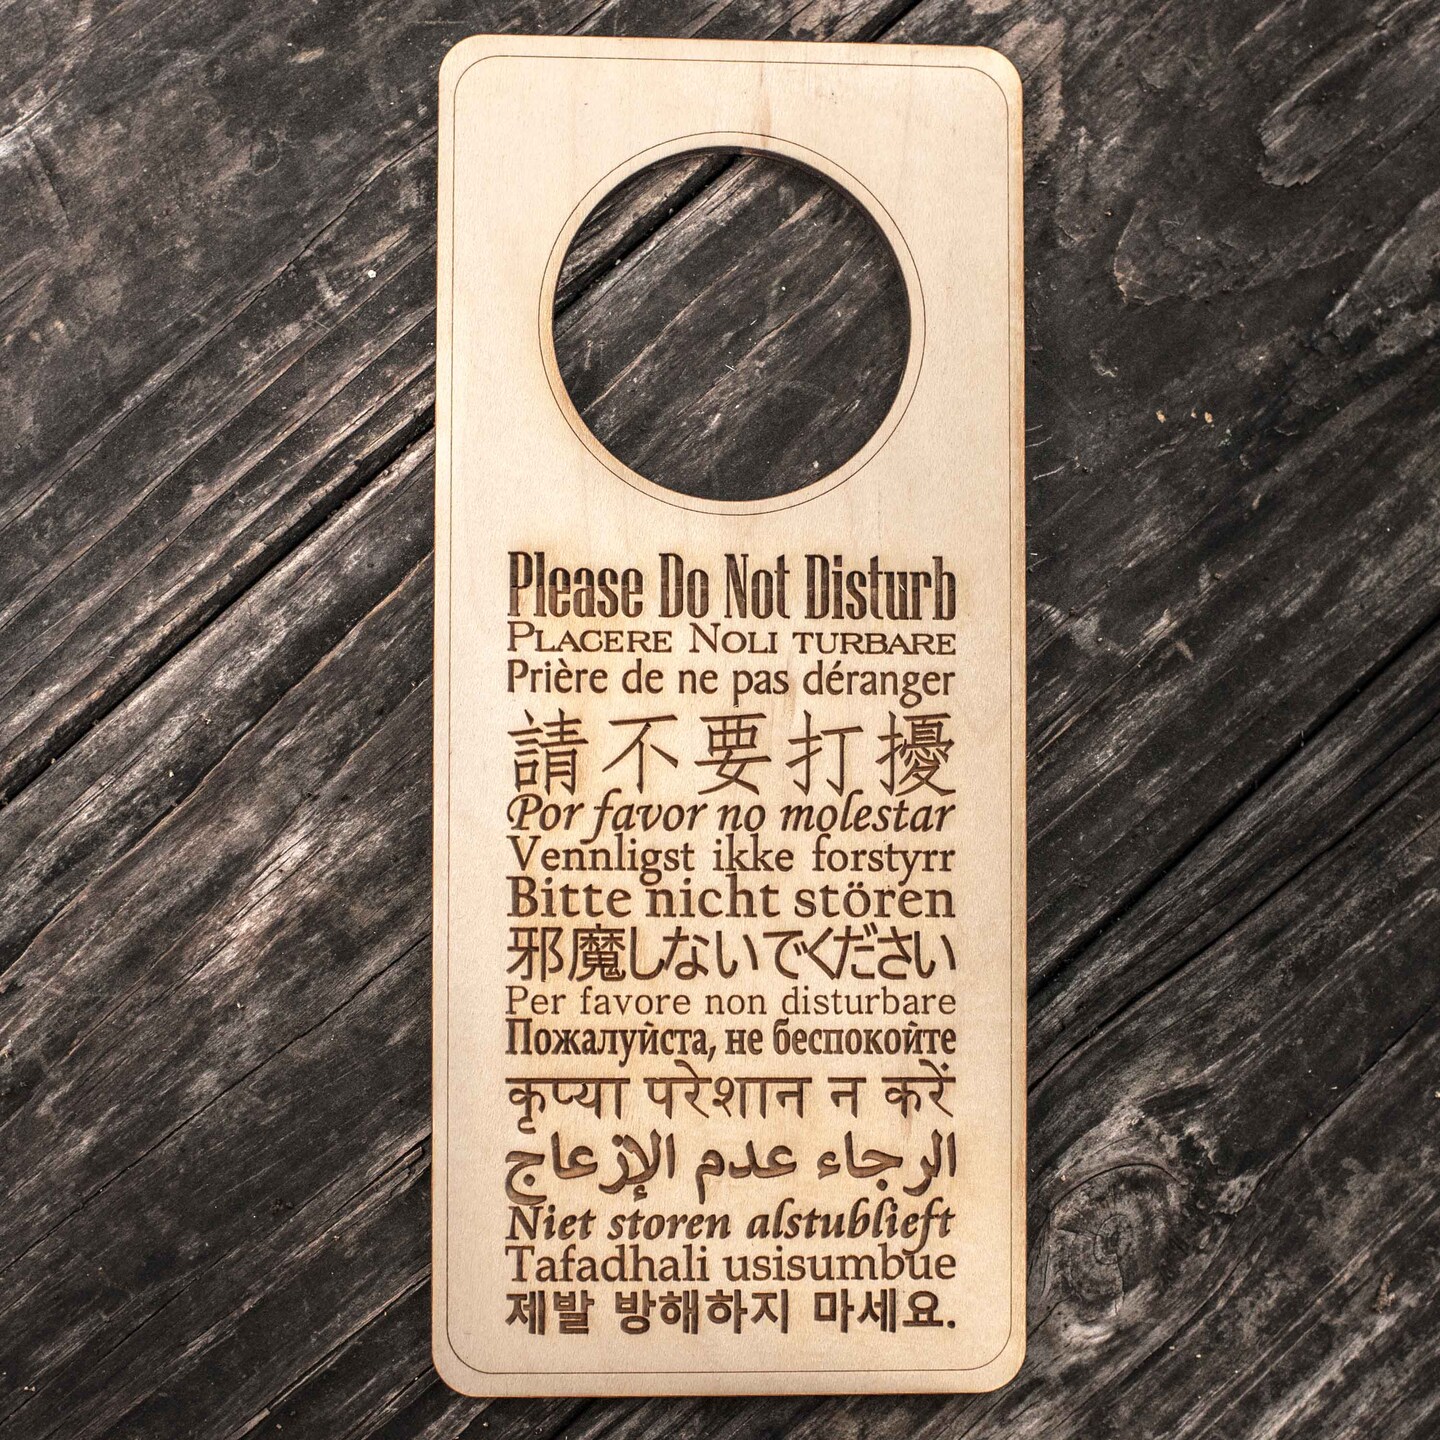 Please Do Not Disturb
PLACERE NOLI TURBARE
Prière de ne pas déranger
請不要打擾
Por favor no molestar
Vennligst ikke forstyrr
Bitte nicht stören
邪魔しないでください
Per favore non disturbare
Пожалуйста, не беспокойте
कृप्या परेशान न करें
الرجاء عدم الإزعاج
Niet storen alstublieft
Tafadhali usisumbue
제발 방해하지 마세요.